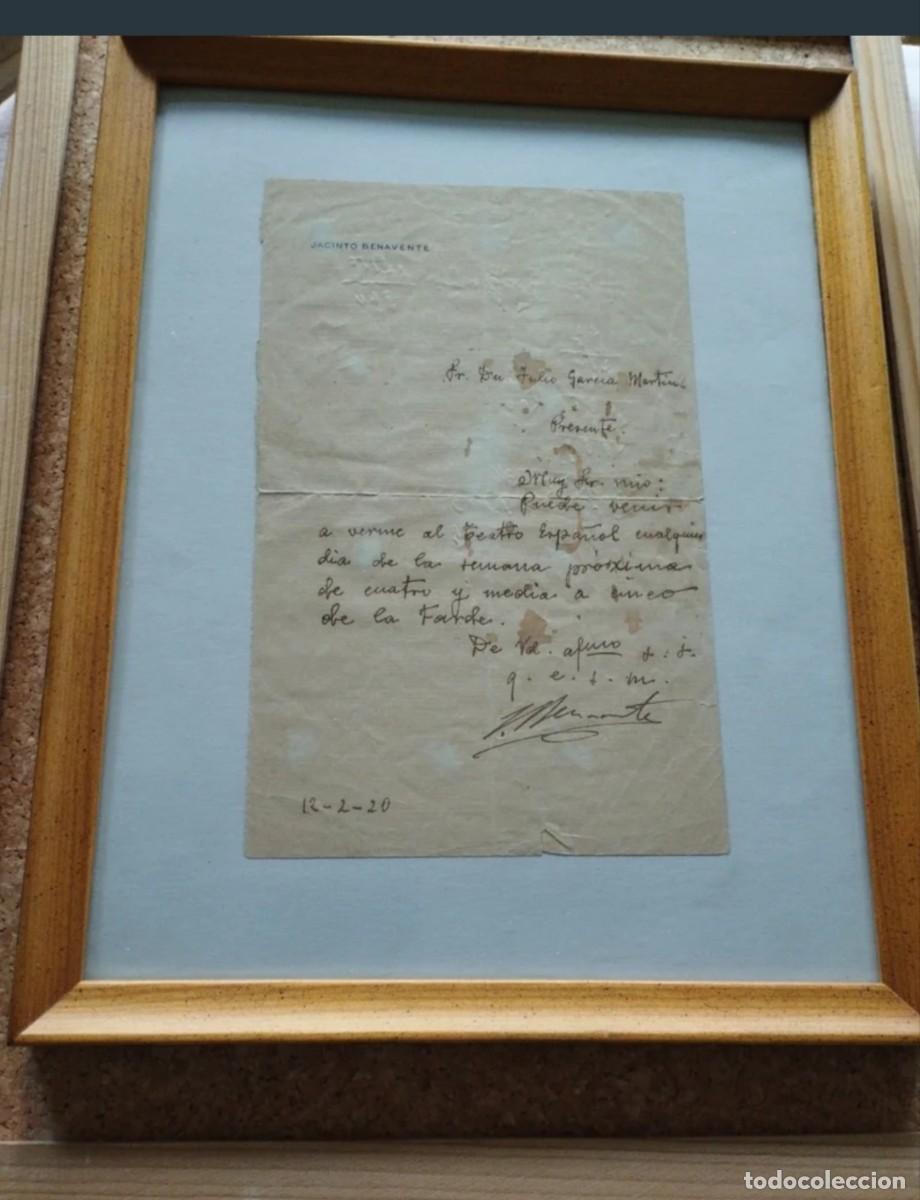 JACINTO BENAVENTE
Sr. Dn Julio García Martín.
Presente.
Muy Sr. mio:
Puede venir
a verme al Teatro Español cualquier
dia de la semana próxima
de cuatro y media a cinco
de la Tarde.
De Vd. afmo s. s.
q. e. s. m.
J. Benavente
12-2-20
todocoleccion